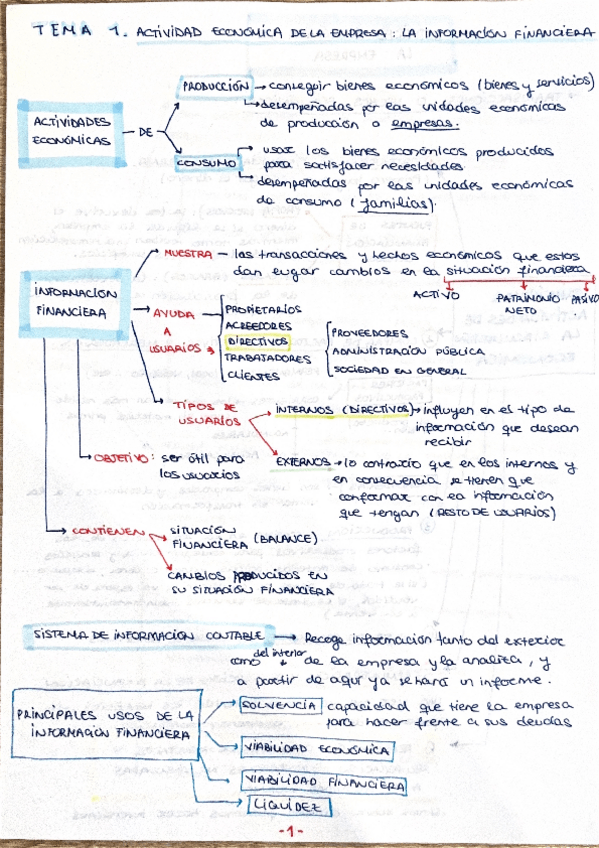 TEMA 1. ACTIVIDAD ECONÓMICA DE LA EMPRESA: LA INFORMACIÓN FINANCIERA
PRODUCCIÓN → conseguir bienes económicos (bienes y servicios)
→ desempeñadas por las unidades económicas
de producción o empresas.
ACTIVIDADES
ECONÓMICAS
DE
CONSUMO
usar los bienes económicos producidos
para satisfacer necesidades.
→ desempeñadas por las unidades económicas
de consumo (familias).
INFORMACIÓN
FINANCIERA
MUESTRA – las transacciones y hechos económicos que estos
dan lugar cambios en la situación financiera
ACTIVO
PATRIMONIO
NETO
PASIVO
AYUDA
A
USUARIOS
PROPIETARIOS
ACREEDORES
DIRECTIVOS
TRABAJADORES
CLIENTES
PROVEEDORES
ADMINISTRACIÓN PÚBLICA
SOCIEDAD EN GENERAL
TIPOS DE
USUARIOS
INTERNOS (DIRECTIVOS) → influyen en el tipo de
información que desean
recibir
EXTERNOS → lo contrario que en los internos y
en consecuencia se tienen que
conformar con la información
que tengan (RESTO DE USUARIOS)
OBJETIVO: ser útil para
los usuarios
CONTIENEN
SITUACIÓN
FINANCIERA (BALANCE)
CAMBIOS PRODUCIDOS EN
SU SITUACIÓN FINANCIERA
SISTEMA DE INFORMACIÓN CONTABLE → Recoge información tanto del exterior
como del interior de la empresa y la analiza, y
a partir de aquí ya se hará un informe.
PRINCIPALES USOS DE LA
INFORMACIÓN FINANCIERA
SOLVENCIA capacidad que tiene la empresa
para hacer frente a sus deudas
VIABILIDAD ECONÓMICA
VIABILIDAD FINANCIERA
LIQUIDEZ
-1-